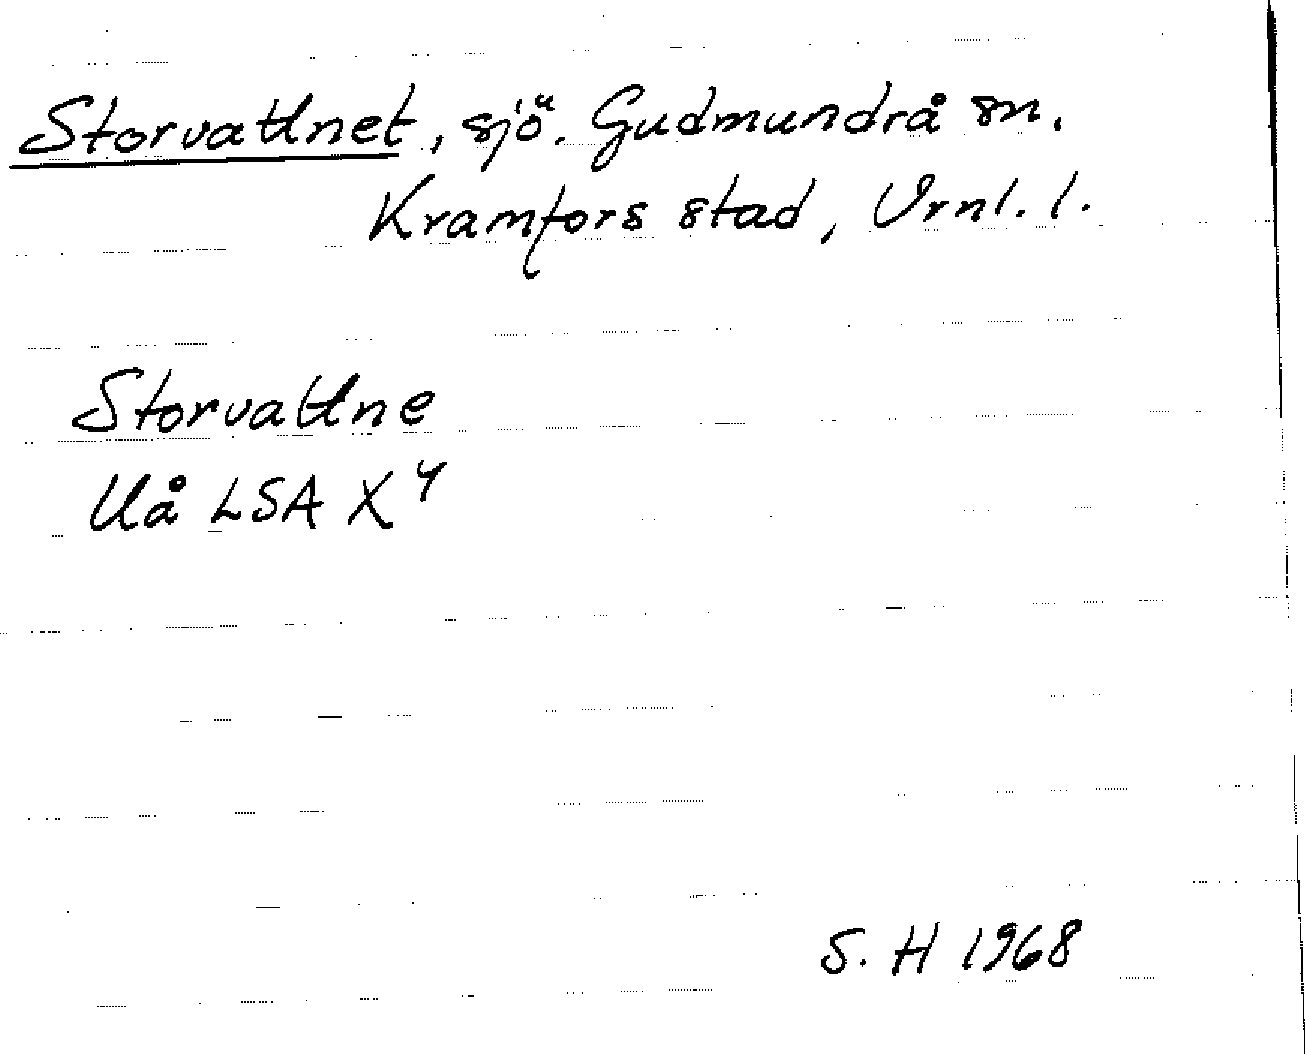 Storvattnet, sjö. Gudmundrå sn.
Kramfors stad, Vrnl. l.
Storvattne
Uå LSA X 4
S. H 1968